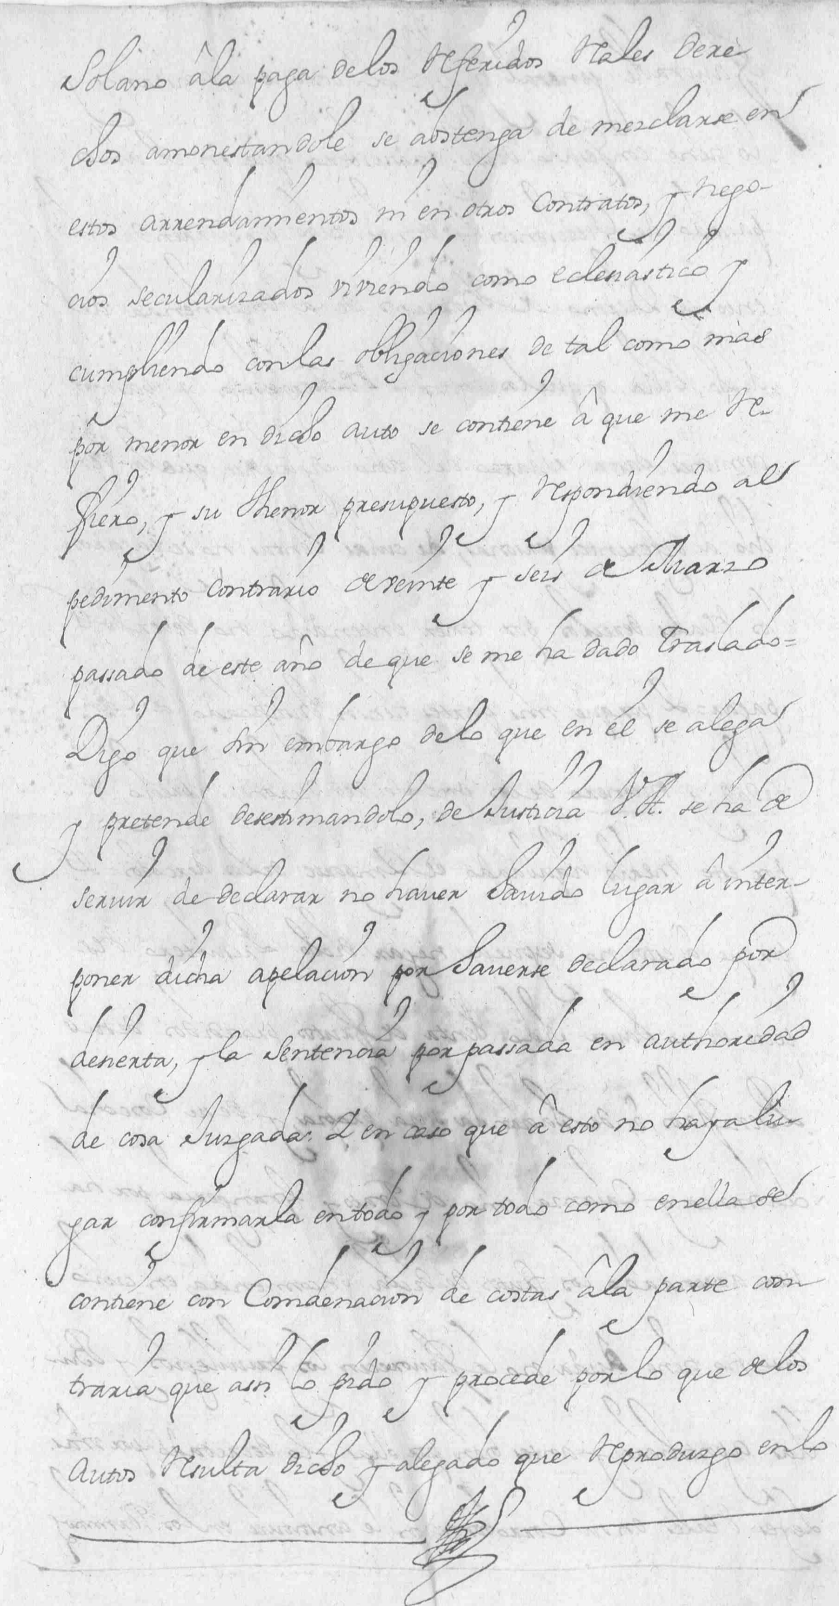 Solano âla paga delos Referidos Rales dere-
chos amonestandole se abstenga de mezclarse en
estos arrendamientos ni en otros Contratos, y nego-
cios secularizados viviendo como eclesiastico y
cumpliendo conlas obligaciones de tal como mas
por menor en dicho auto se contiene â que me Re-
fiero, y su thenor presupuesto, y Respondiendo al
pedimento Contrario de veinte y seis de Marzo
passado de este año de que se me ha dado Traslado=
Digo que sin embargo delo que en êl se alega
y pretende desestimandolo, de Justicia V.A. se ha de
servir de declarar no haver havido lugar â inter-
poner dicha apelacion por haverse declarado por
desierta, y la Sentencia por passada en authoridad
de cosa Juzgada. Y en caso que â esto no haya lu-
gar confirmarla entodo y por todo como enella se
contiene con Condenacion de costas âla parte con-
traria que assi lo pido y procede porlo que delos
Autos Resulta dicho y alegado que Reproduzgo enlo